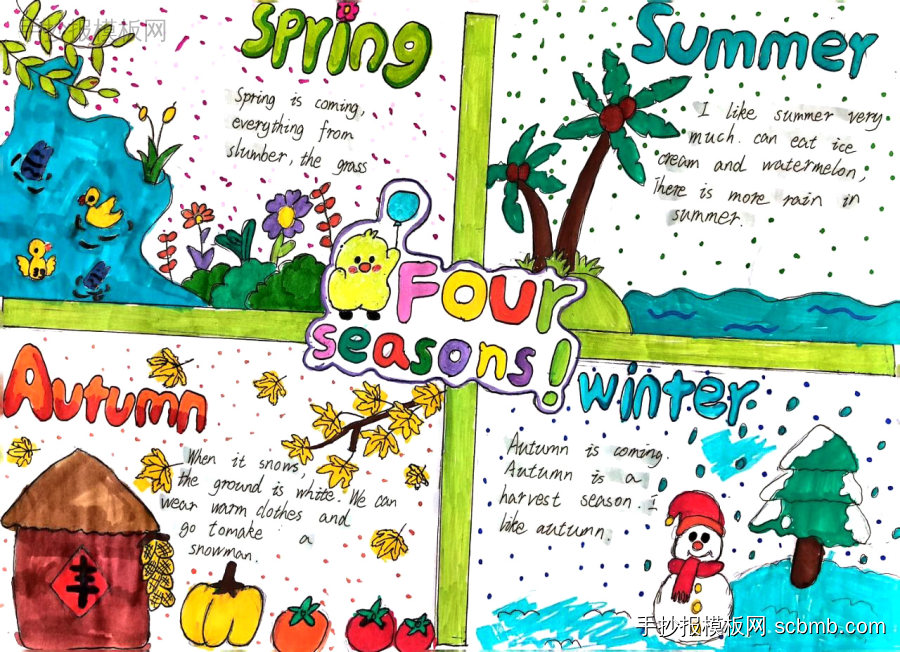 手抄报模板网
Spring
Spring is coming,
everything from
slumber, the grass
Summer
I like summer very
much. can eat ice
cream and watermelon,
There is more rain in
summer.
Four
seasons!
Autumn
When it snows,
the ground is white. We can
wear warm clothes and
go tomake a
snowman.
丰
winter
Autumn is coming.
Autumn is a
harvest season. I
like autumn.
手抄报模板网 scbmb.com